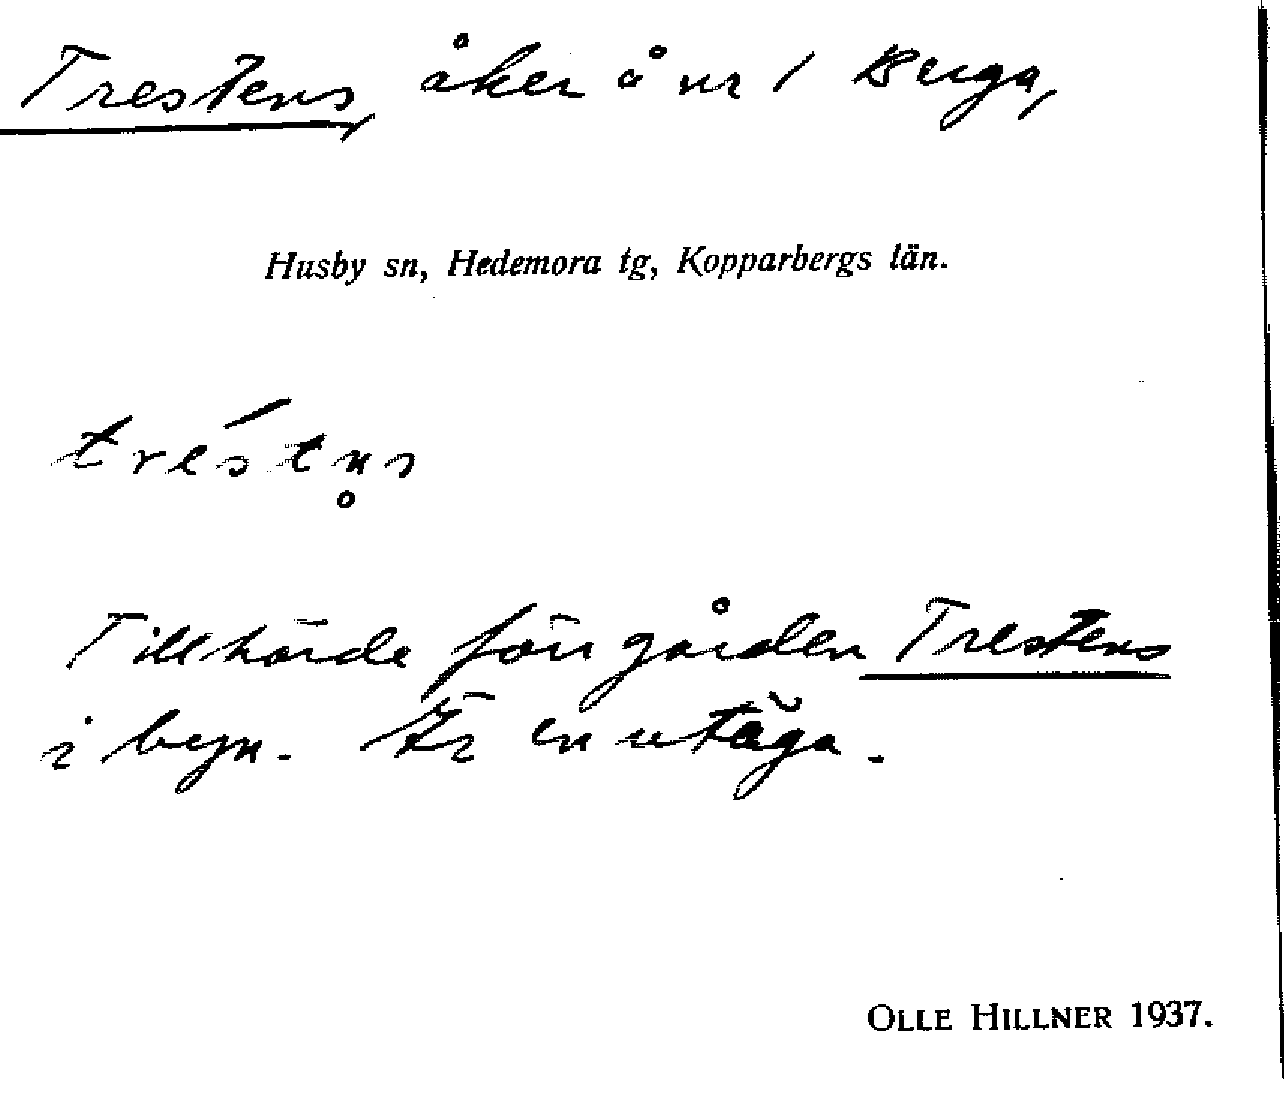 Trestens, åker å nr 1 Berga,
Husby sn, Hedemora tg, Kopparbergs län.
tréstn̥s
Tillhörde förr gården Trestens
i byn. Är en utäga.
OLLE HILLNER 1937.